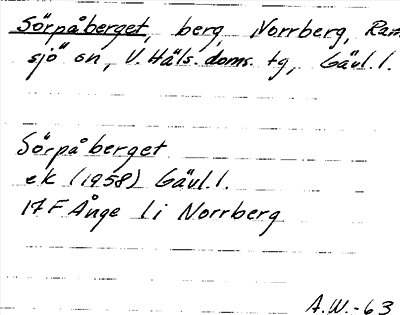 Sörpåberget, berg, Norrberg, Ram
sjö sn, V. Häls. doms. tg, Gävl. l.
Sörpåberget
ek (1958) Gävl. l.
17F Ånge 1 i Norrberg
A.W.-63